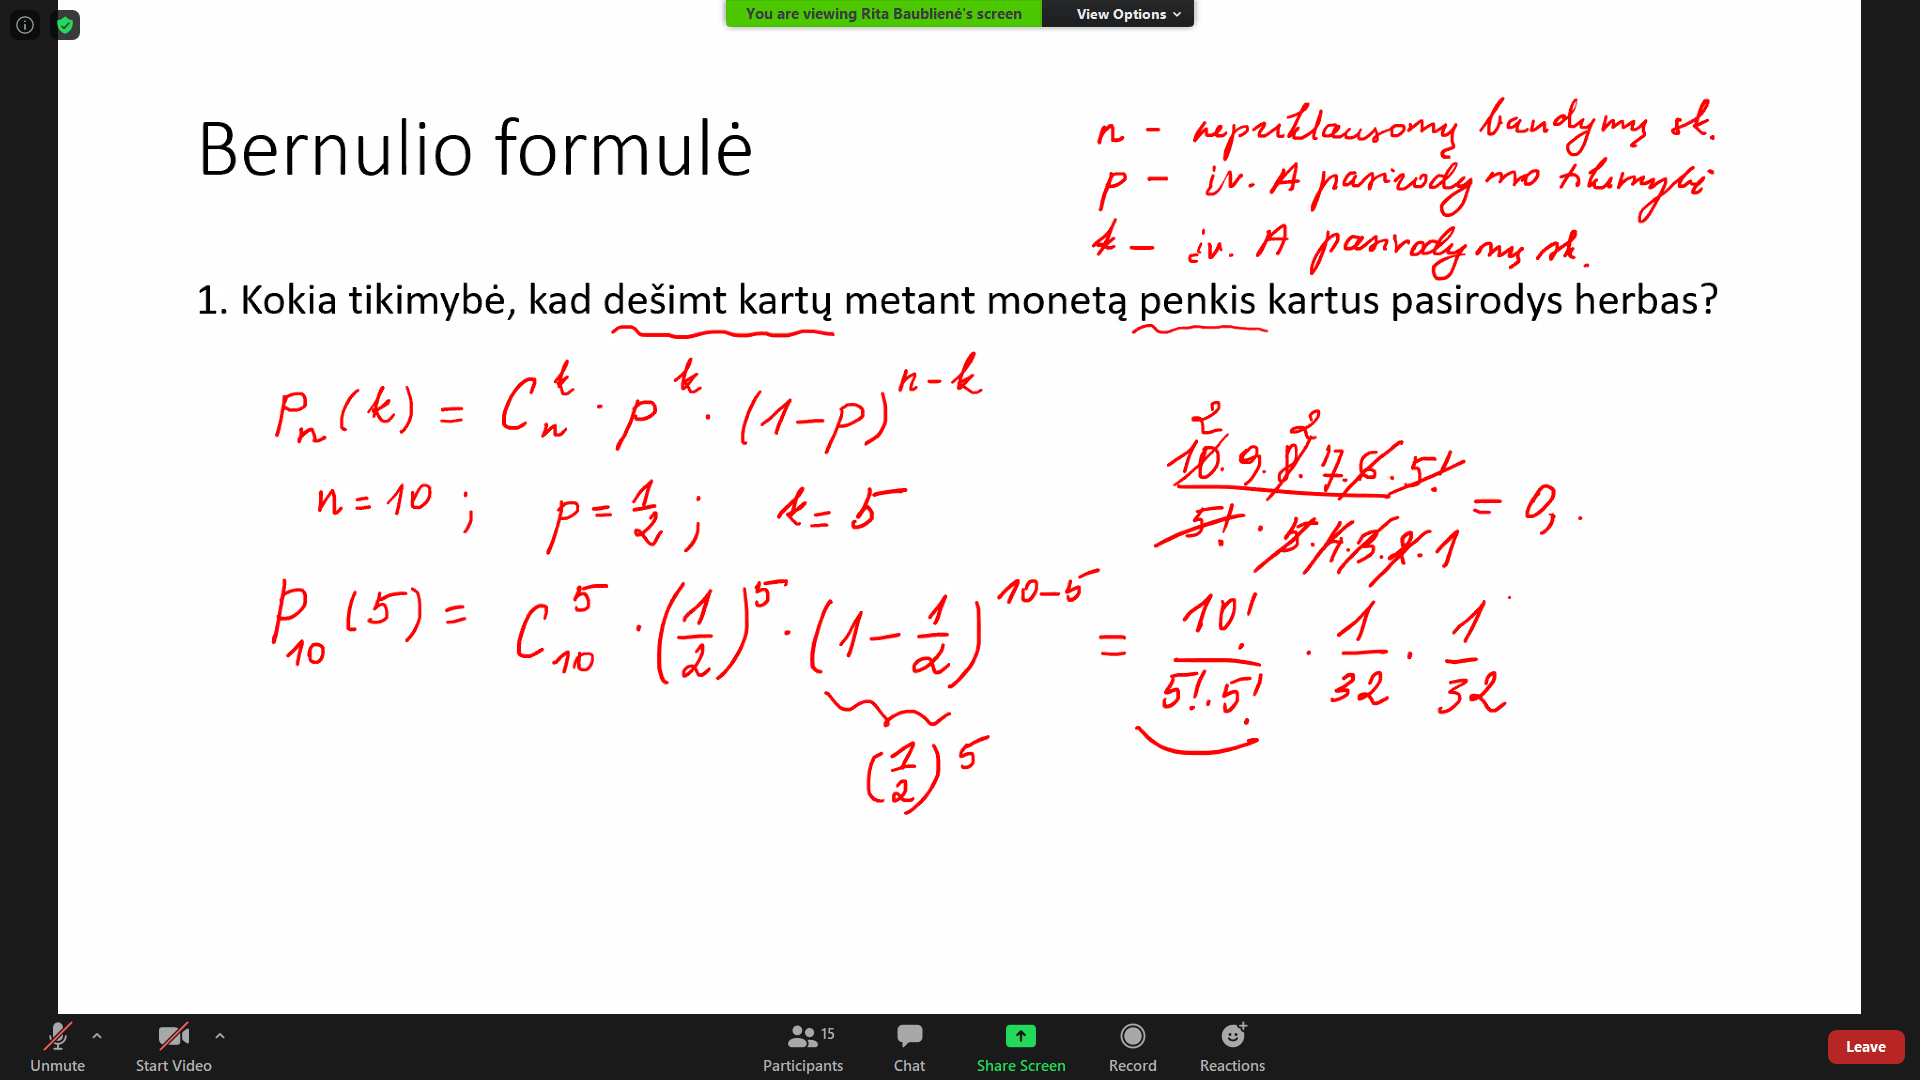 You are viewing Rita Baublienė's screen View Options
Bernulio formulė
n - nepriklausomų bandymų sk.
p - įv. A pasirodymo tikimybė
k - įv. A pasirodymų sk.
1. Kokia tikimybė, kad dešimt kartų metant monetą penkis kartus pasirodys herbas?
Pₙ(k) = Cₙᵏ · pᵏ · (1-p)ⁿ⁻ᵏ
2 2
10·9·8·7·6·5! / 5!·5·4·3·2·1 = 0,.
n = 10 ; p = 1/2 ; k = 5
P₁₀(5) = C₁₀⁵ · (1/2)⁵ · (1 - 1/2)¹⁰⁻⁵ = 10! / 5!·5! · 1/32 · 1/32
(1/2)⁵
Unmute Start Video Participants 15 Chat Share Screen Record Reactions Leave